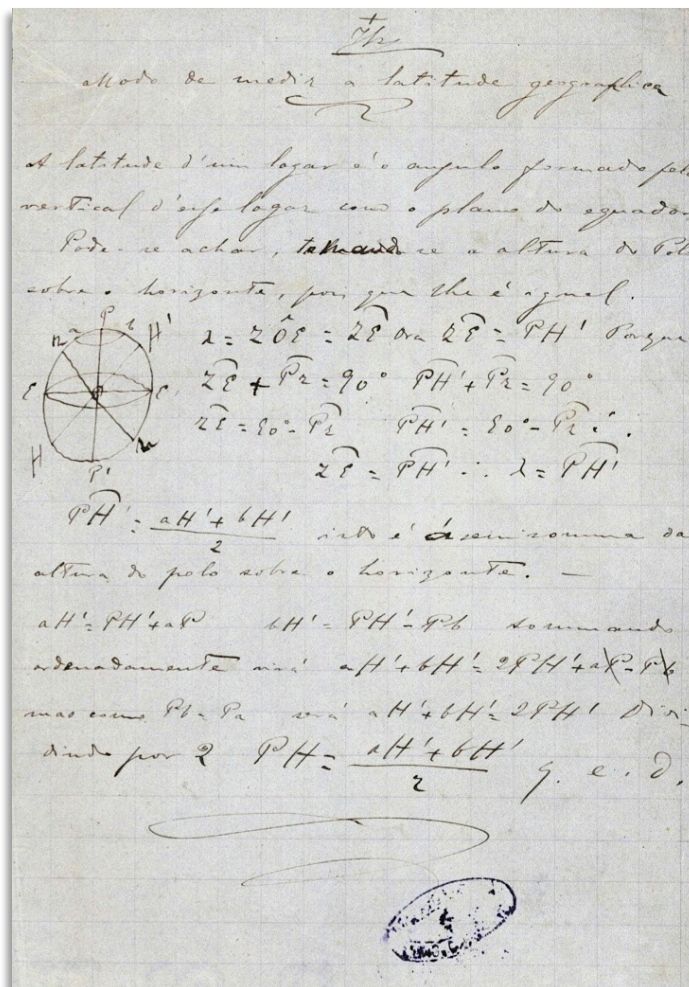 Modo de medir a latitude geographica
A latitude d'um logar é o angulo formado pela
vertical d'esse logar com o plano do equador
Pode-se achar, tomando-se a altura do Polo
sobre o horizonte, por que lhe é egual.
λ = ZÔE = ZE Ora ZE = PH' Porque
ZE + PZ = 90° PH' + PZ = 90°
ZE = 90° - PZ PH' = 90° - PZ ∴
ZE = PH' ∴ λ = PH'
P
a b
H'
E
H
P'
PH' = aH' + bH' / 2 isto é á semisomma da
altura do polo sobre o horizonte. —
aH' = PH' + aP bH' = PH' - Pb sommando
ordenadamente virá aH' + bH' = 2PH' + aP - Pb
mas como Pb = Pa virá aH' + bH' = 2PH' Divi-
dindo por 2 PH = aH' + bH' / 2 q. e. d.